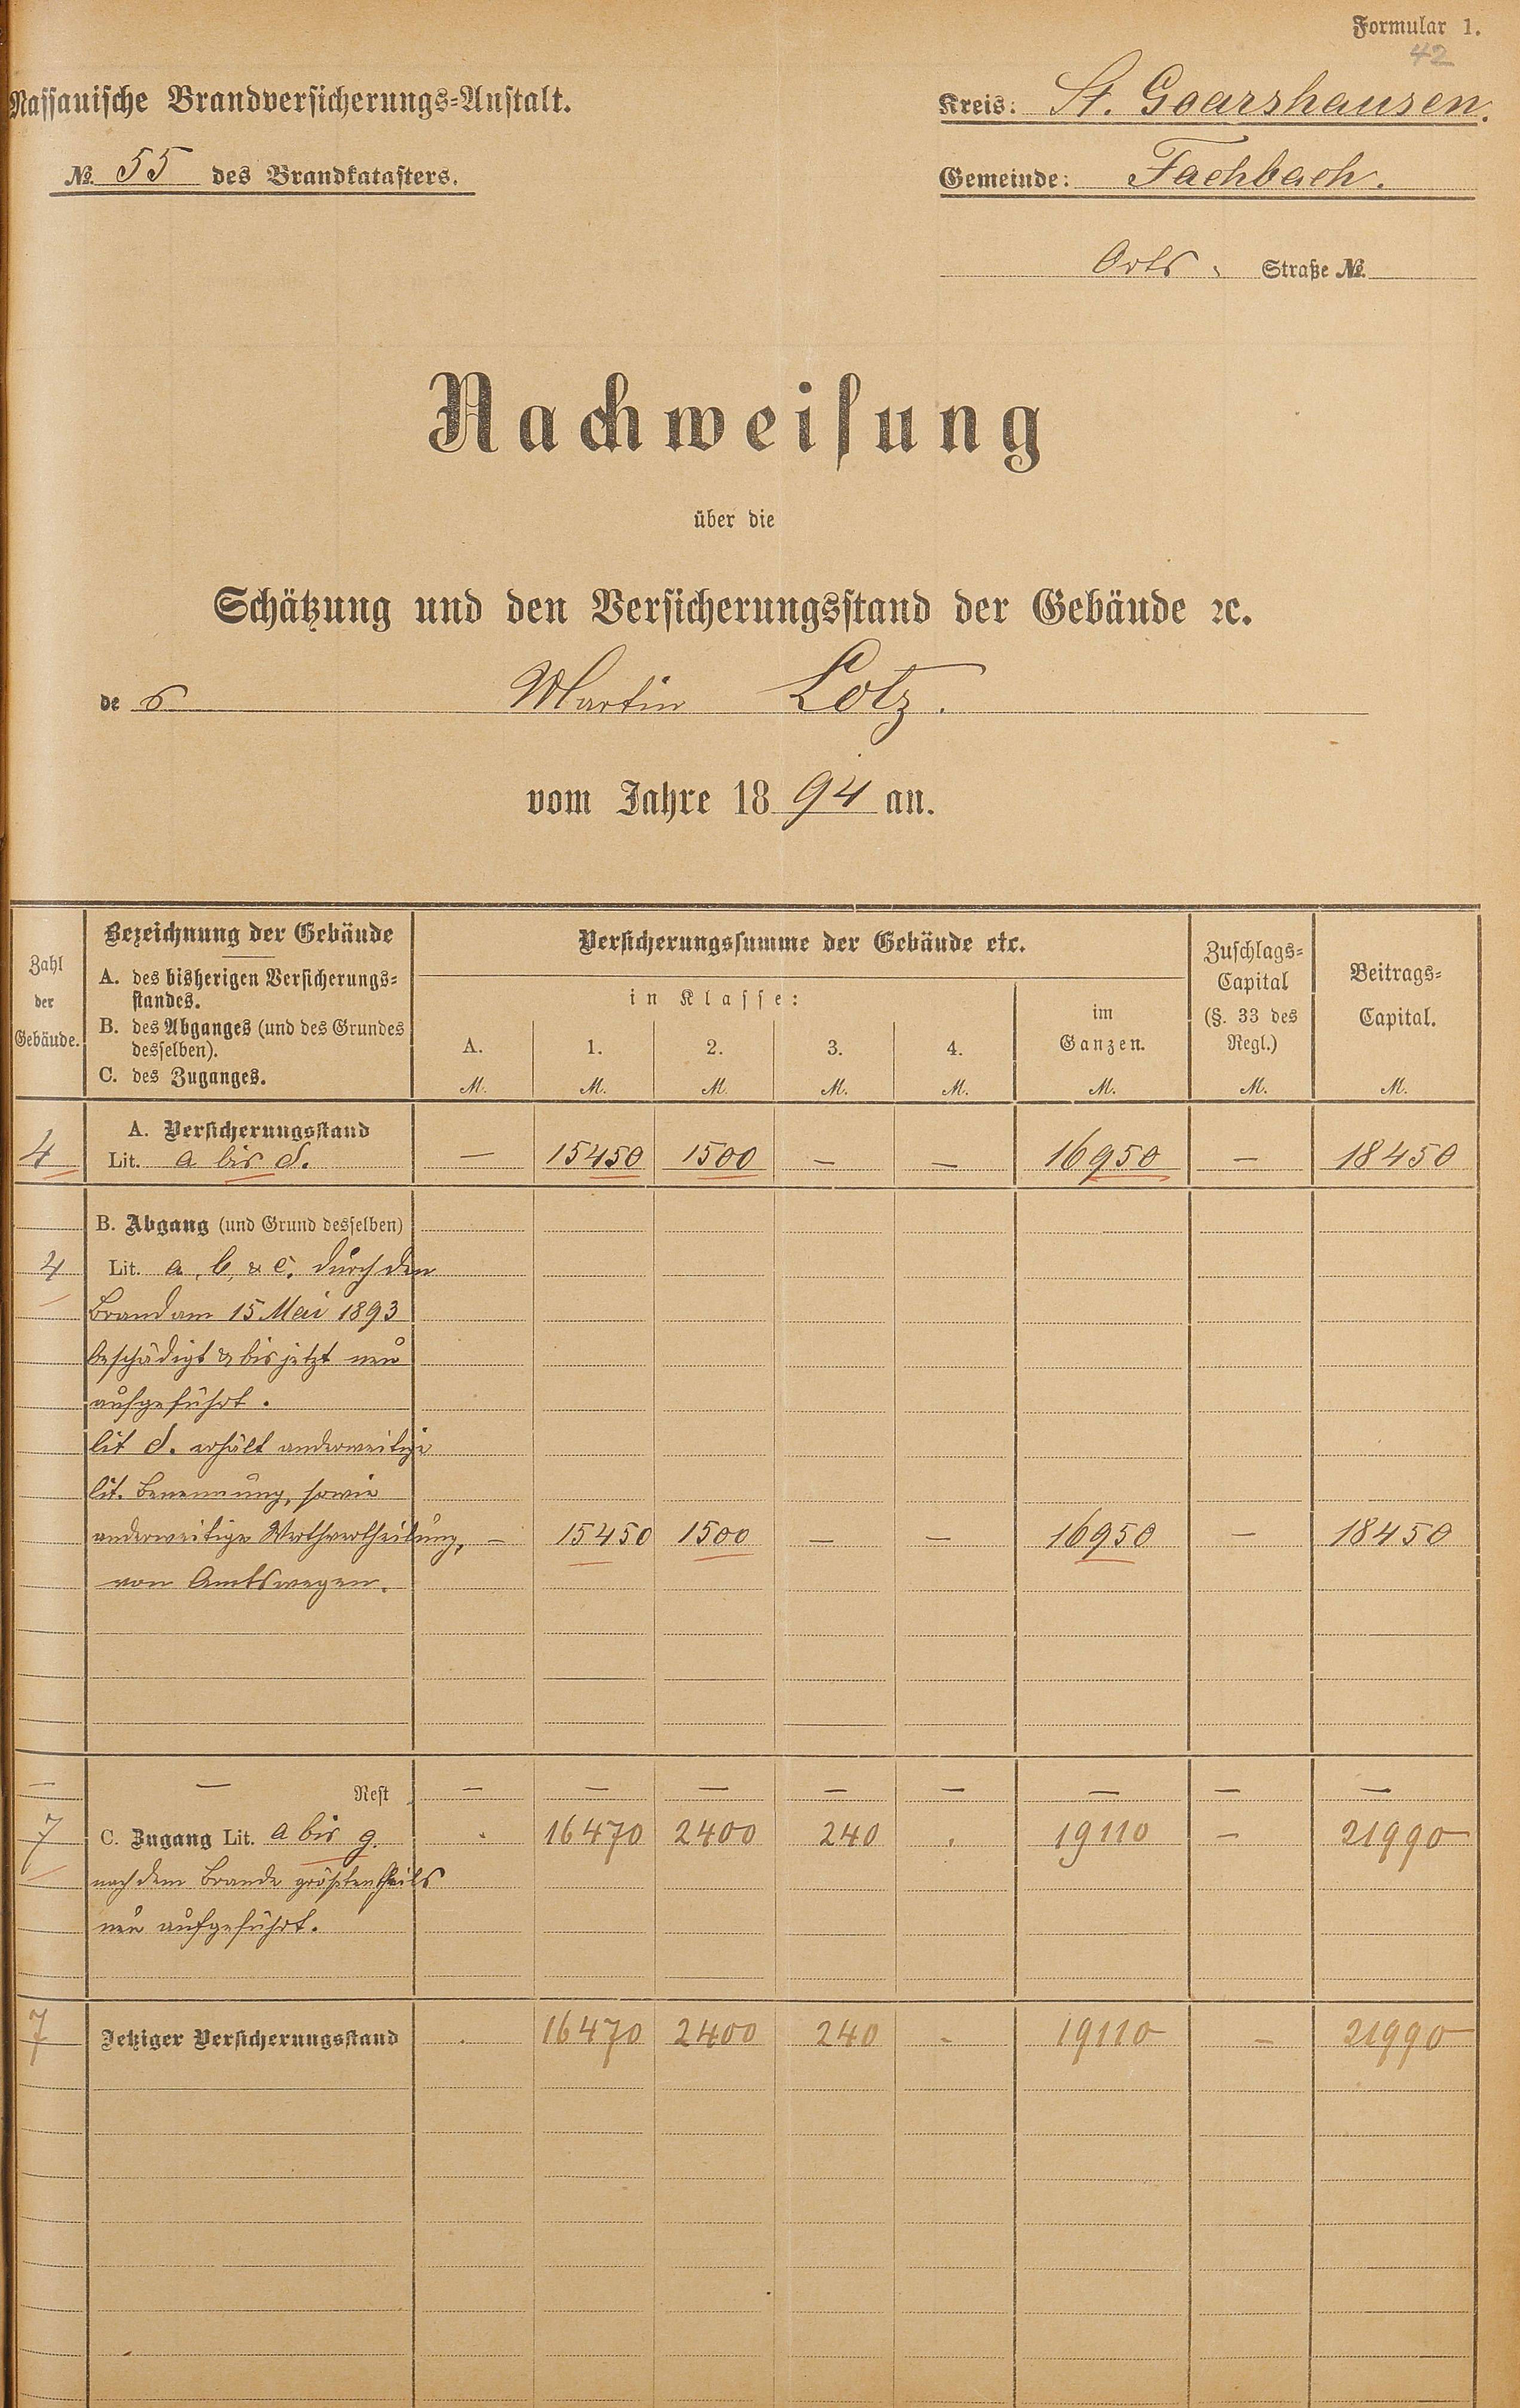 Formular 1.
42
Nassauische Brandversicherungs-Anstalt.
Kreis: St. Goarshausen.
№. 55 des Brandkatasters.
Gemeinde: Fachbach.
Orts Straße №.
Nachweisung
über die
Schätzung und den Versicherungsstand der Gebäude ꝛc.
de s Martin Lotz.
vom Jahre 1894 an.
Zahl der Gebäude.
Bezeichnung der Gebäude
A. des bisherigen Versicherungs-
standes.
B. des Abganges (und des Grundes
desselben).
C. des Zuganges.
Versicherungssumme der Gebäude etc.
in Klasse:
A. 1. 2. 3. 4.
im
Ganzen.
Zuschlags-
Capital
(§. 33 des
Regl.)
Beitrags-
Capital.
M. M. M. M. M. M. M. M.
A. Versicherungsstand
4 Lit. a bis d. — 15450 1500 — — 16950 — 18450
B. Abgang (und Grund desselben)
4 Lit. a, b, & c. durch den
Brand am 15 Mai 1893
beschädigt & bis jetzt neu
aufgeführt.
lit d. erhält anderweitige
lit. Benennung, sowie
anderweitige Werthvertheilung, — 15450 1500 — — 16950 — 18450
von Amtswegen.
— — Rest — — — — — — — —
7 C. Zugang Lit. a bis g. . 16470 2400 240 . 19110 — 21990
nach dem Brande größtentheils
neu aufgeführt.
7 Jetziger Versicherungsstand . 16470 2400 240 - 19110 — 21990